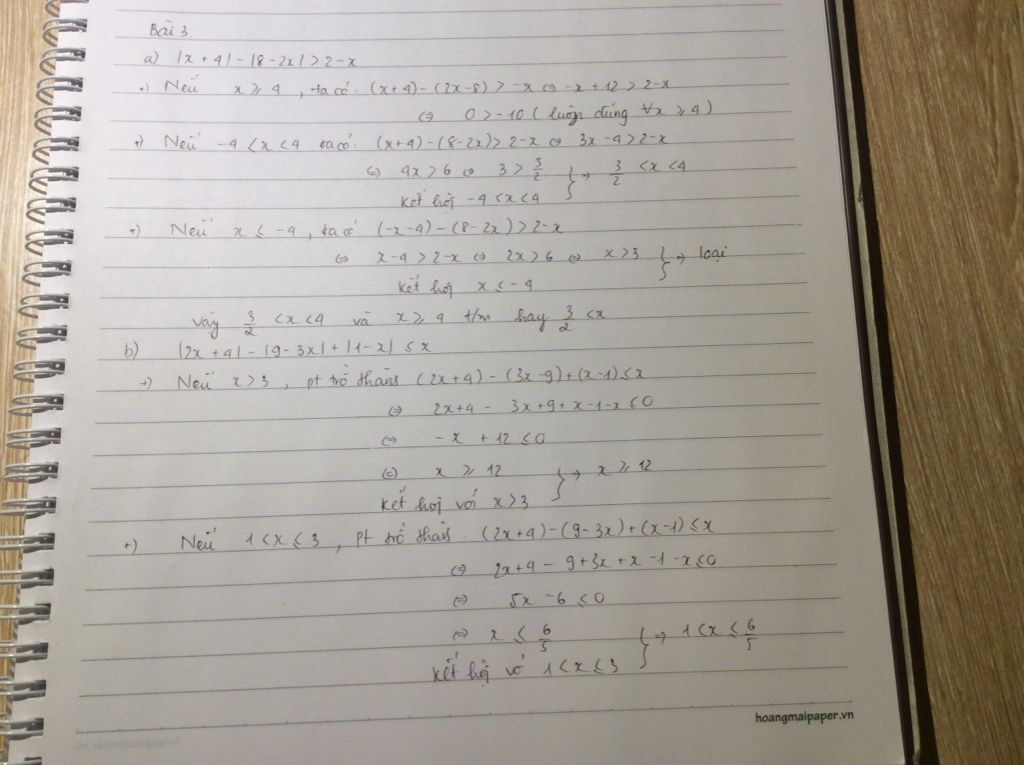 Bài 3.
a) |x + 4| - |8 - 2x| > 2 - x
+) Nếu x ≥ 4, ta có: (x+4) - (2x-8) > -x ⇔ -x + 12 > 2-x
⇔ 0 > -10 (luôn đúng ∀x ≥ 4)
+) Nếu -4 < x < 4 ta có: (x+4) - (8-2x) > 2-x ⇔ 3x - 4 > 2-x
⇔ 4x > 6 ⇔ 3 > 3/2 } → 3/2 < x < 4
kết hợp -4 < x < 4
+) Nếu x ≤ -4, ta có: (-x-4) - (8-2x) > 2-x
⇔ x-4 > 2-x ⇔ 2x > 6 ⇔ x > 3 } → loại
kết hợp x ≤ -4
vậy 3/2 < x < 4 và x ≥ 4 t/m hay 3/2 < x
b) |2x + 4| - |9 - 3x| + |1 - x| ≤ x
+) Nếu x > 3, pt trở thành (2x+4) - (3x-9) + (x-1) ≤ x
⇔ 2x+4 - 3x+9 + x-1-x ≤ 0
⇔ -x + 12 ≤ 0
⇔ x ≥ 12 } → x ≥ 12
kết hợp với x > 3
+) Nếu 1 < x ≤ 3, pt trở thành: (2x+4) - (9-3x) + (x-1) ≤ x
⇔ 2x+4 - 9+3x + x -1 -x ≤ 0
⇔ 5x - 6 ≤ 0
⇔ x ≤ 6/5 } → 1 < x ≤ 6/5
kết hợp vớ 1 < x ≤ 3
hoangmaipaper.vn